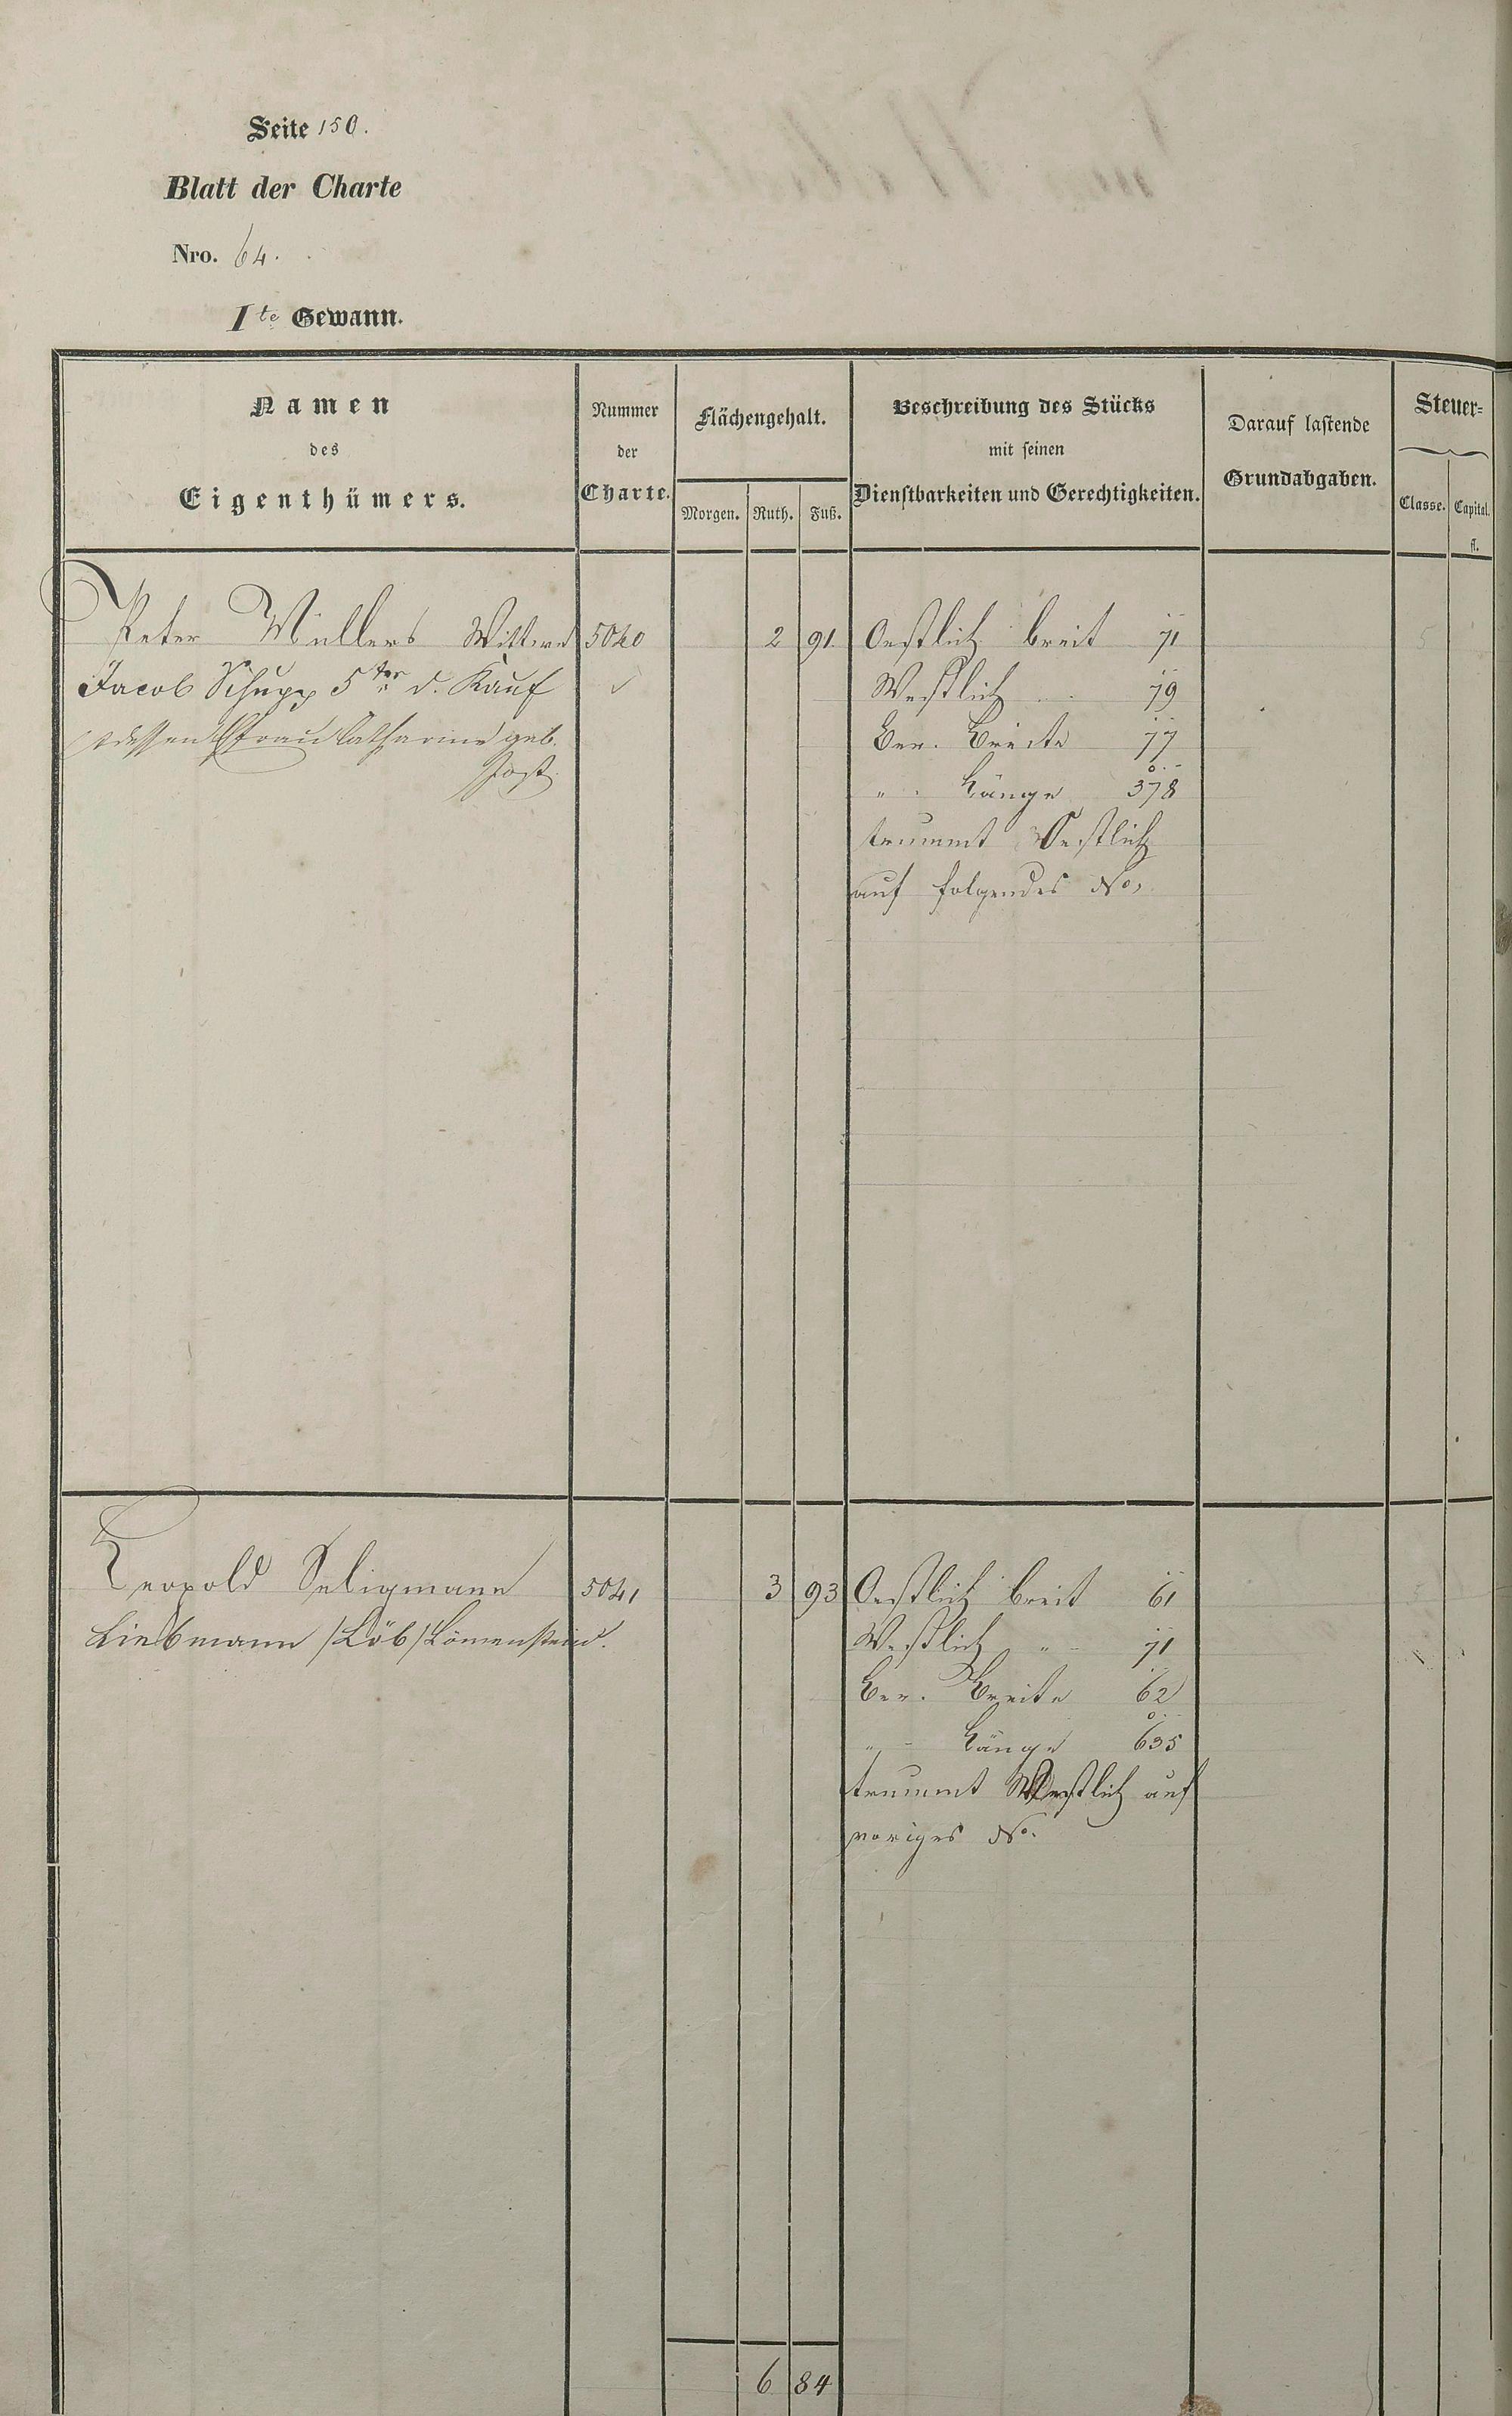 Seite 150.
Blatt der Charte
Nro. 64.
Ite Gewann.
Namen
des
Eigenthümers.
Nummer
der
Charte.
Flächengehalt.
Morgen. Ruth. Fuß.
Beschreibung des Stücks
mit seinen
Dienstbarkeiten und Gerechtigkeiten.
Darauf lastende
Grundabgaben.
Steuer=
Classe. Capital.
fl.
Peter Müllers Wittwe 5040 2 91 Oestlich breit 71 5
Jacob Schupp 5ter d. Kauf Westlich 79
dessen Frau Catharine geb. Ber. Breite 77
Jost " Länge 378
trummt Oestlich
auf folgendes No.
Leopold Seligmann 5041 3 93 Oestlich breit 61
Liebmann /Löb/ Löwenstein. Westlich " 71
Ber. Breite 62
" Länge 635
trummt Westlich auf
voriges No.
6 84